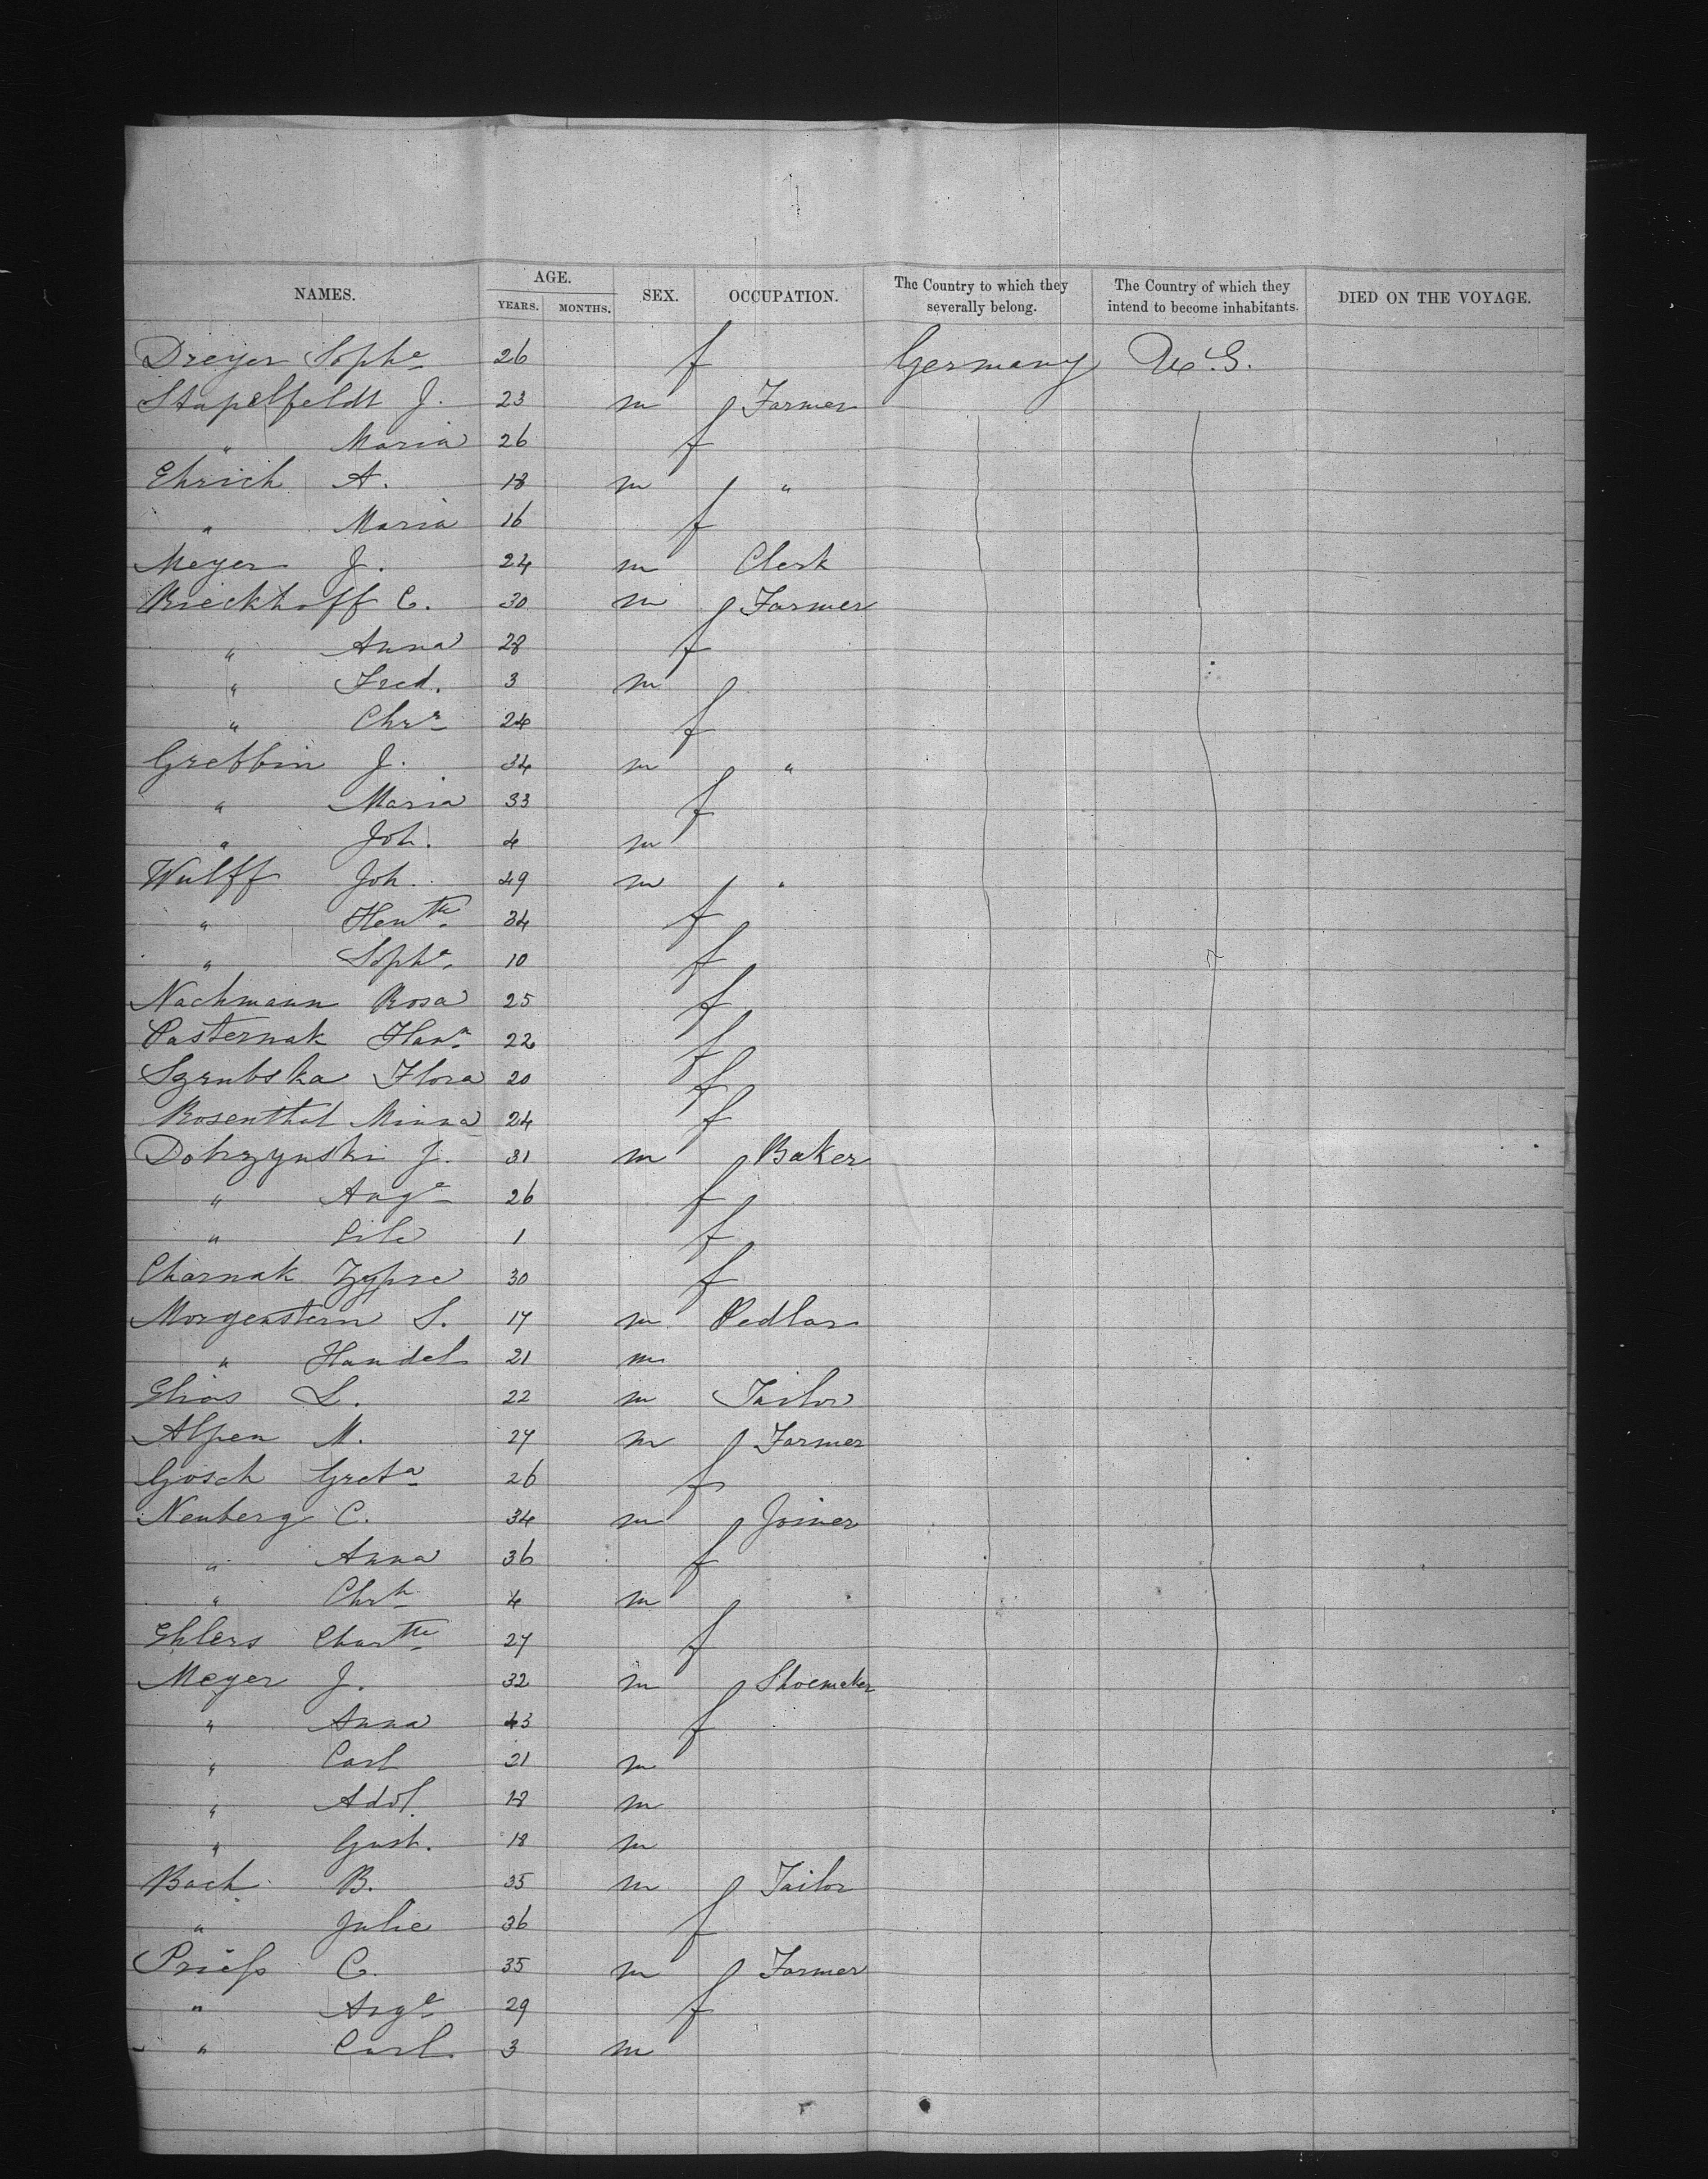 NAMES. AGE. YEARS. MONTHS. SEX. OCCUPATION. The Country to which they severally belong. The Country of which they intend to become inhabitants. DIED ON THE VOYAGE.
Dreyer Sophe 26 f Germany U.S.
Stapelfeldt J. 23 m Farmer
" Maria 26 f
Ehrich A. 18 m "
" Maria 16 f
Meyer J. 24 m Clerk
Rieckhoff C. 30 m Farmer
" Anna 28 f
" Fred. 3 m
" Chrs 24 f
Grebbin J. 34 m "
" Maria 33 f
" Joh. 4 m
Wulff Joh. 49 m "
" Hentte 34 f
" Sophe 10 f
Nachmann Rosa 25 f
Pasternak Hann 22 f
Szrubska Flora 20 f
Rosenthal Minna 24 f
Dobrzynski J. 31 m Baker
" Auge 26 f
" 1 f
Charnak 30 f
Morgenstern S. 17 m Pedlar
" Handel 21 m
Elias L. 22 m Tailor
Alpen M. 27 m Farmer
Gosch Greta 26 f
Neuberg C. 34 m Joiner
" Anna 36 f
" Chrh 4 m
Ehlers Chartte 27 f
Meyer J. 32 m Shoemaker
" Anna 43 f
" Carl 21 m
" Adol. 18 m
" Gust. 18 m
Bach B. 35 m Tailor
" Julie 36 f
Priess C. 35 m Farmer
" Auge 29 f
" Carl 3 m